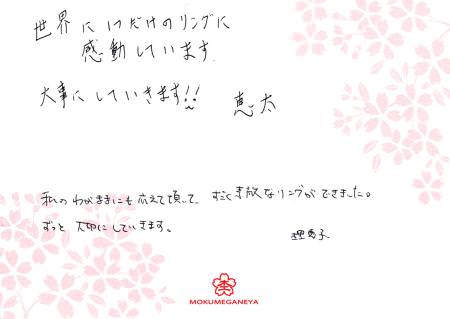 世界に1つだけのリングに
感動しています
大事にしていきます!!
恵太
私のわがままにも応えて頂いて、すごく素敵なリングができました。
ずっと大切にしていきます。
MOKUMEGANEYA